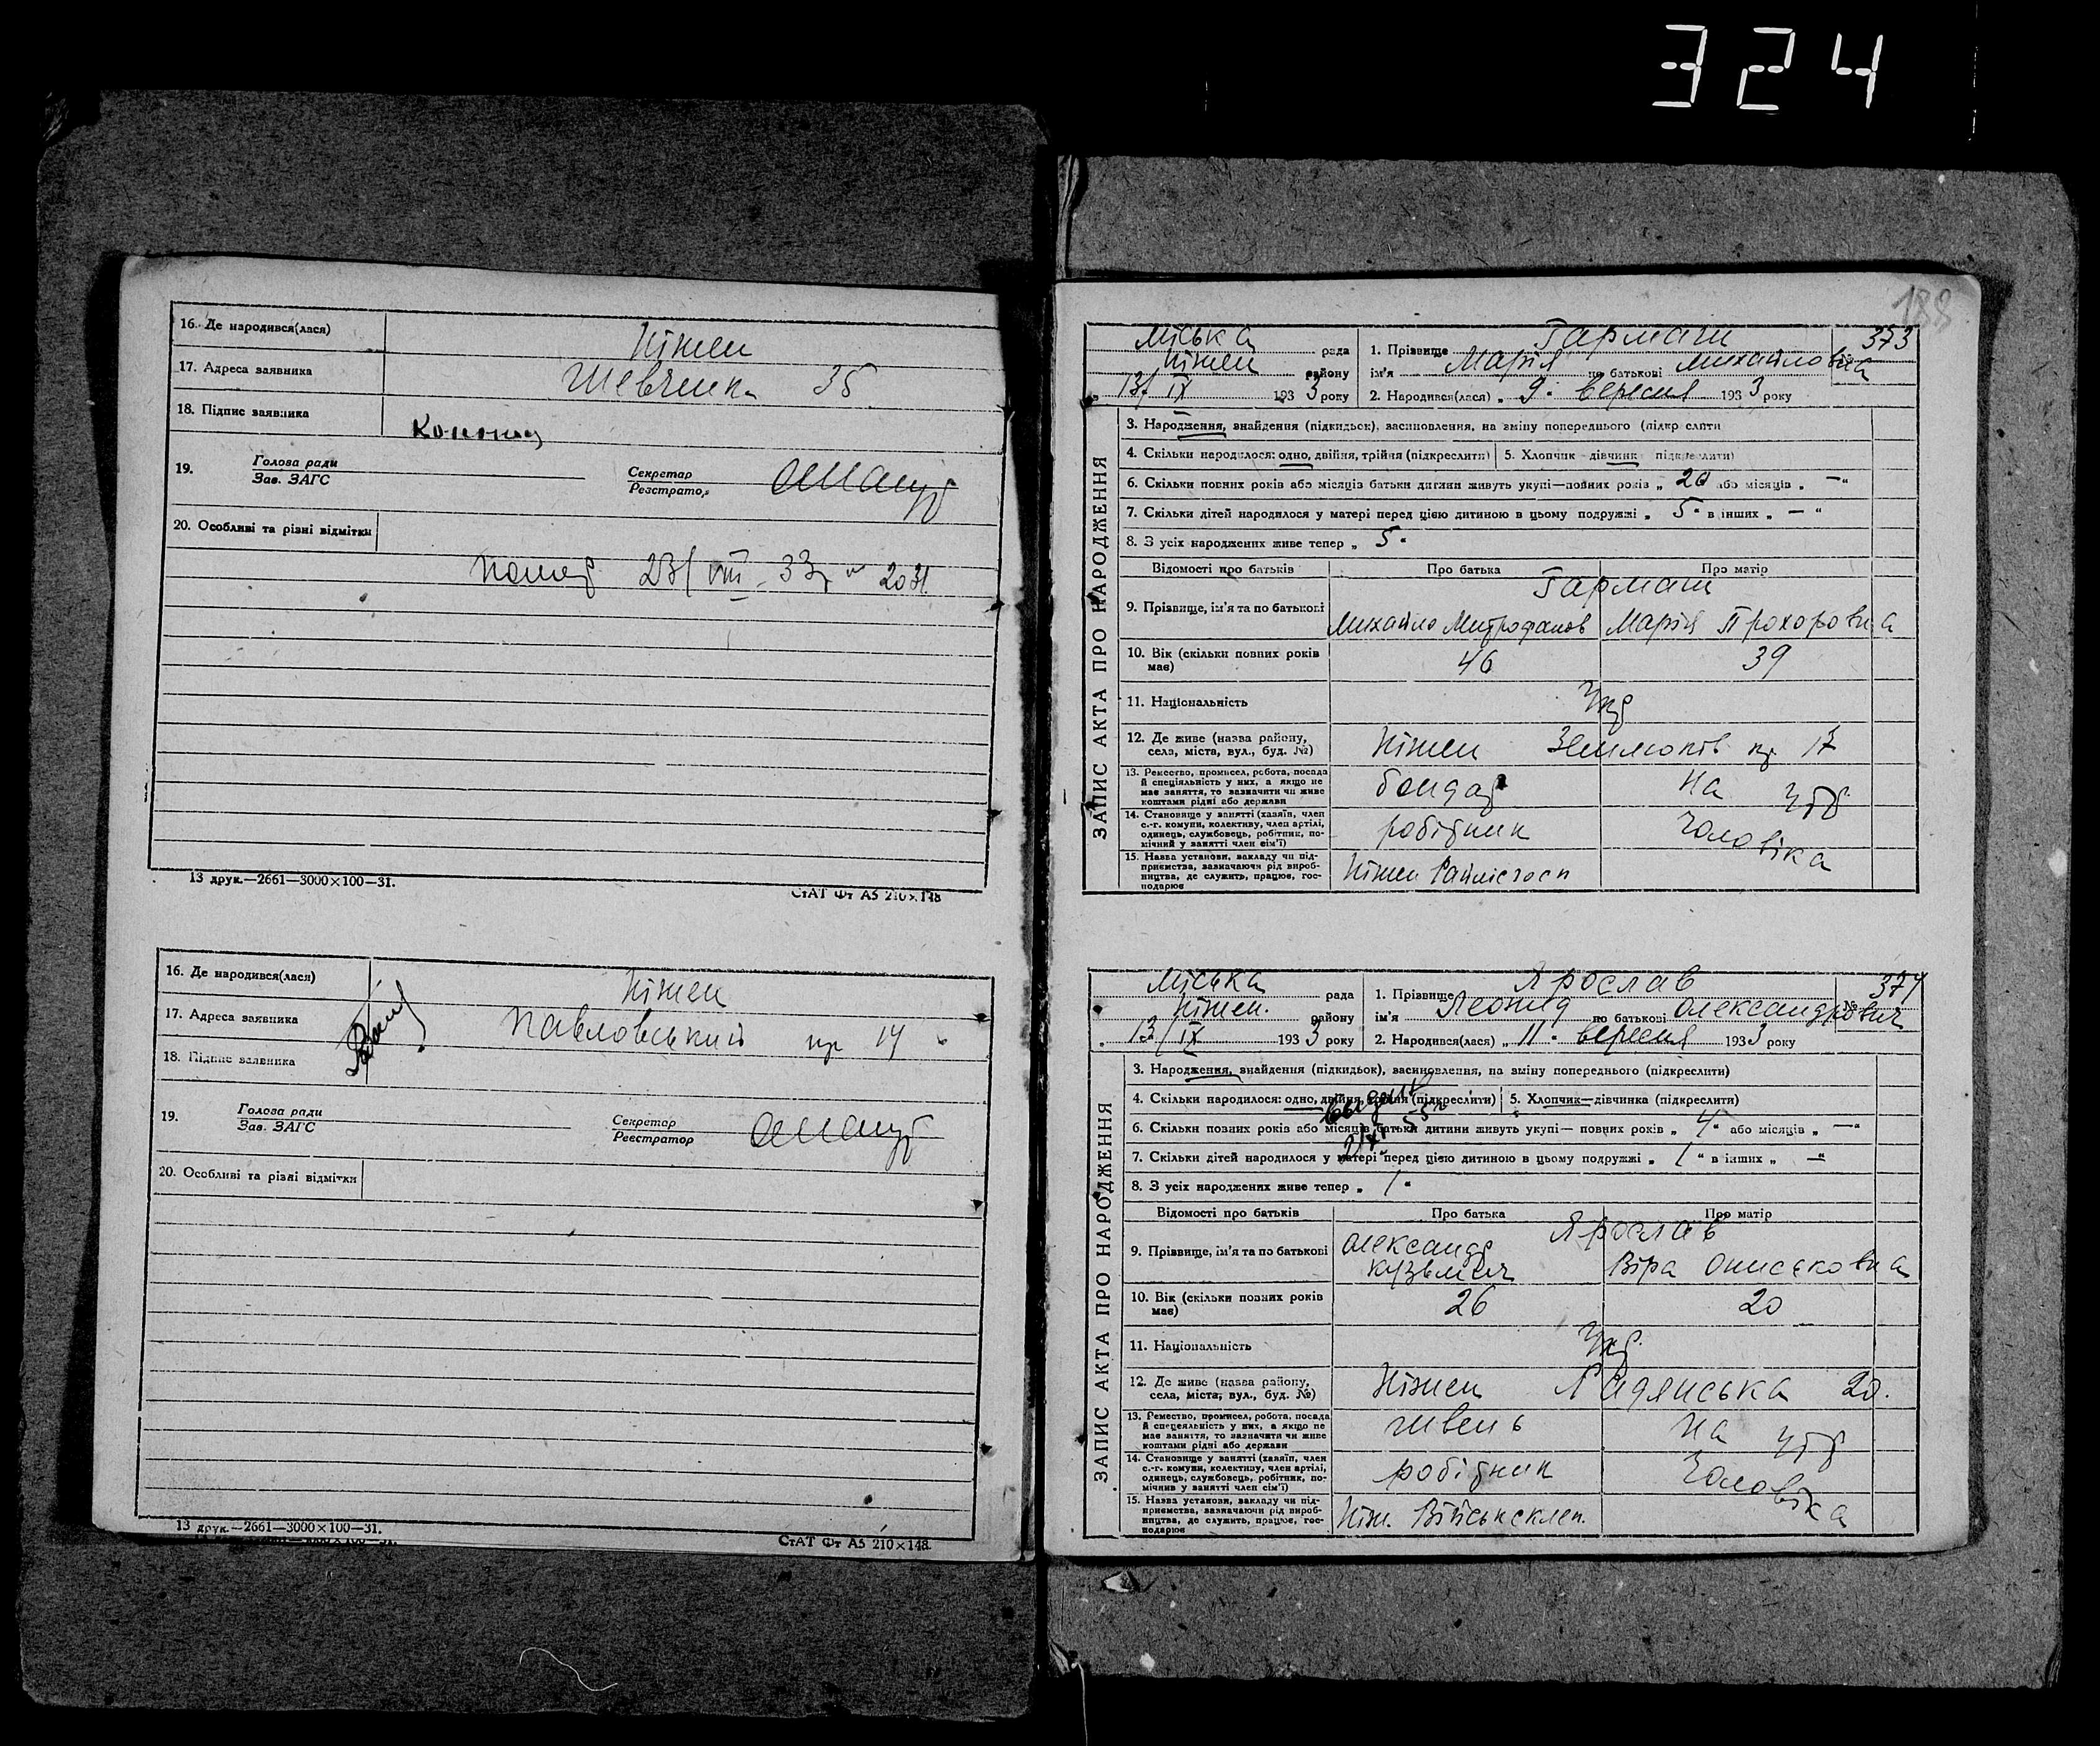 324
16. Де народився(лася) Ніжен
17. Адреса заявника Шевченка 35
18. Підпис заявника
19. Голова ради Секретар
Зав. ЗАГС Реєстратор
20. Особливі та різні відмітки
помер 23/VIII-33р № 2031
13 друк.—2661—3000×100—31.
СтАТ Фт А5 210×148
16. Де народився(лася) Ніжен
17. Адреса заявника Павловський пр 14
18. Підпис заявника
19. Голова ради Секретар
Зав. ЗАГС Реєстратор
20. Особливі та різні відмітки
13 друк.—2661—3000×100—31.
СтАТ Фт А5 210×148
188
ЗАПИС АКТА ПРО НАРОДЖЕННЯ
Міська рада 1. Прізвище Гармаш 373
Ніжен району ім'я Марія по батькові Михайловна
13/IX 1933 року 2. Народився(лася) „ 9 " вересня 1933 року
3. Народження, знайдення (підкидьок), засиновлення, на зміну попереднього (підкреслити
4. Скільки народилося: одно, двійня, трійня (підкреслити) 5. Хлопчик дівчинк підкреслити)
6. Скільки повних років або місяців батьки дитини живуть укупі—повних років „ 20 або місяців „ — "
7. Скільки дітей народилося у матері перед цією дитиною в цьому подружжі „ 5 " в інших „ — "
8. З усіх народжених живе тепер „ 5 "
Відомості про батьків Про батька Про матір
Гармаш
9. Прізвище, ім'я та по батькові Михайло Митрофанов Марія Прохоровна
10. Вік (скільки повних років має) 46 39
11. Національність Укр
12. Де живе (назва району, села, міста, вул., буд. №) Ніжен пр 17
13. Ремество, промисел, робота, посада й спеціяльність у них, а якщо не має заняття, то зазначити чи живе коштами рідні або держави бондар На утр
14. Становище у занятті (хазяїн, член с.-г. комуни, колективу, член артілі, одинець, службовець, робітник, помічний у занятті член сім'ї) робітник чоловіка
15. Назва установи, закладу чи підприємства, зазначаючи рід виробництва, де служить, працює, господарює Ніжен Райлісгосп
ЗАПИС АКТА ПРО НАРОДЖЕННЯ
Міська рада 1. Прізвище Ярослав № 374
Ніжен. району ім'я Леонид по батькові Олександрович
13/IX 1933 року 2. Народився(лася) „ 11 " вересня 1933 року
3. Народження, знайдення (підкидьок), засиновлення, на зміну попереднього (підкреслити)
4. Скільки народилося: одно, двійня, трійня (підкреслити) 5. Хлопчик—дівчинка (підкреслити)
6. Скільки повних років або місяців батьки дитини живуть укупі— повних років „ 4 " або місяців „ — "
7. Скільки дітей народилося у матері перед цією дитиною в цьому подружжі „ 1 " в інших „ — "
8. З усіх народжених живе тепер „ 1 "
Відомості про батьків Про батька Про матір
Ярослав
9. Прізвище, ім'я та по батькові Олександр Кузьмич Віра Ониськовна
10. Вік (скільки повних років має) 26 20
11. Національність Укр.
12. Де живе (назва району, села, міста, вул., буд. №) Ніжен Радянська 20.
13. Ремество, промисел, робота, посада й спеціяльність у них, а якщо не має заняття, то зазначити чи живе коштами рідні або держави швець На утр
14. Становище у занятті (хазяїн, член с.-г. комуни, колективу, член артілі, одинець, службовець, робітник, помічний у занятті член сім'ї) робітник чоловіка
15. Назва установи, закладу чи підприємства, зазначаючи рід виробництва, де служить, працює, господарює Ніж.